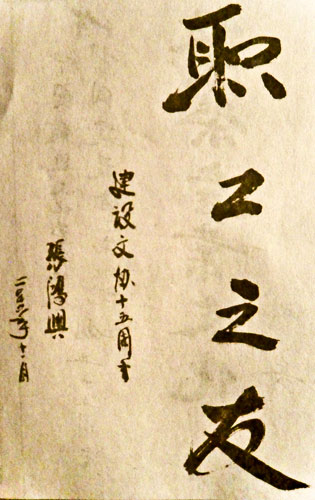 职工之友
建设文协十五周年
張鴻興
二〇〇五年十一月